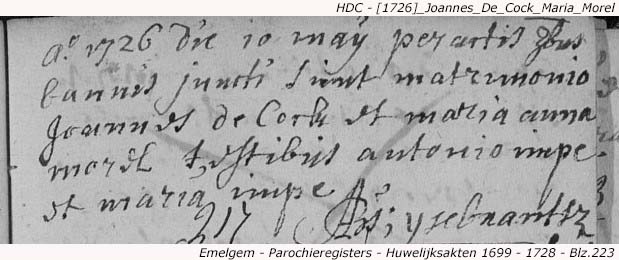 HDC - [1726]_Joannes_De_Cock_Maria_Morel
A° 1726 die 10 maÿ peractis 3bus
bannis juncti sunt matrimonio
Joannes de Cock et maria anna
morel testibus antonio impe
et maria impe
217
Emelgem - Parochieregisters - Huwelijksakten 1699 - 1728 - Blz.223